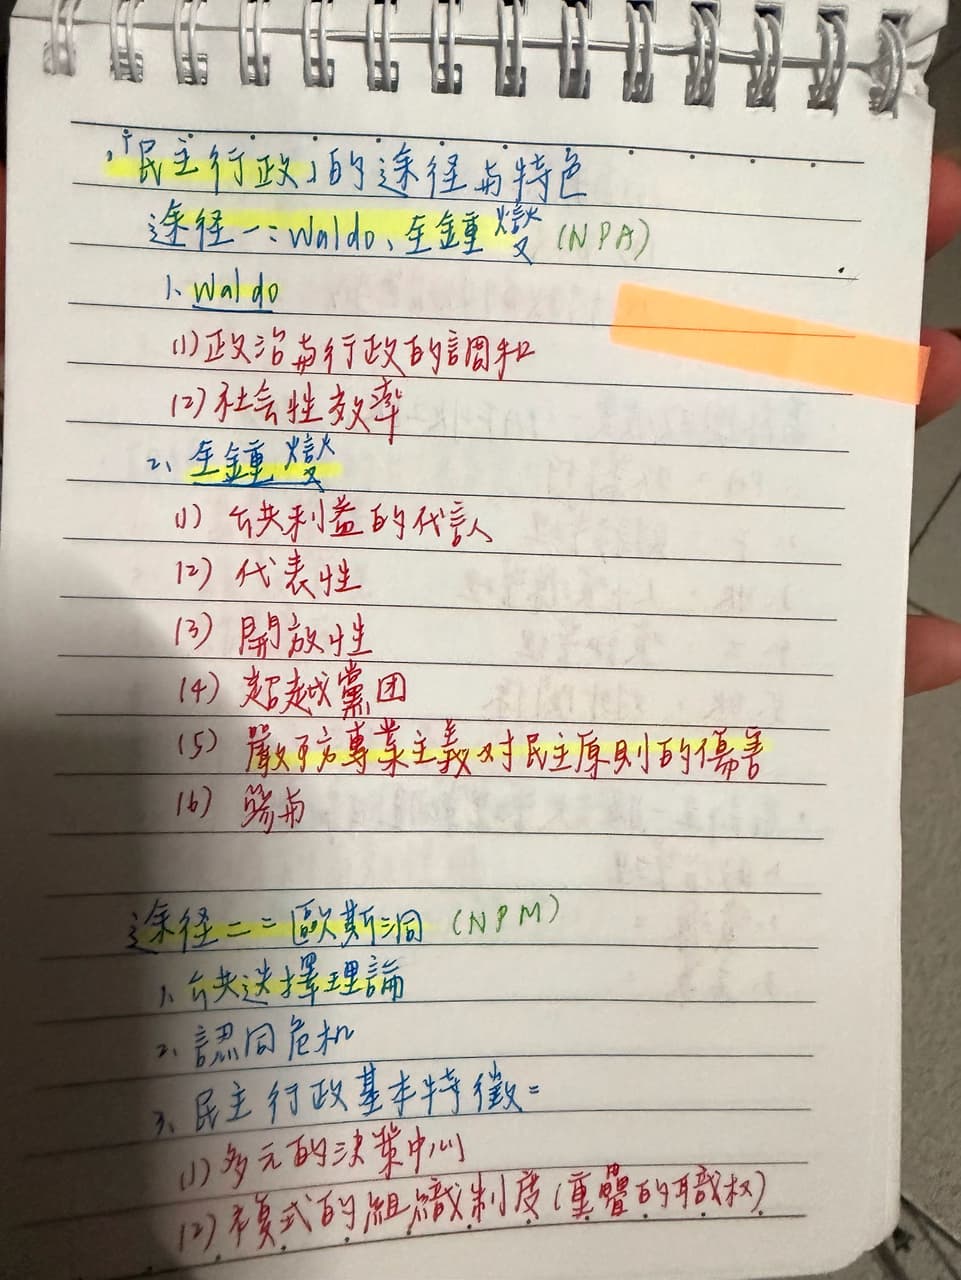 「民主行政」的途径与特色
途径一:Waldo、全鍾燮(NPA)
1、Waldo
(1)政治与行政的調和
(2)社会性效率
2、全鍾燮
(1)公共利益的代言人
(2)代表性
(3)開放性
(4)超越黨团
(5)嚴防專業主義对民主原則的傷害
(6)参与
途径二:歐斯洞(NPM)
1、公共选擇理論
2、認同危机
3、民主行政基本特徵:
(1)多元的決策中心
(2)複式的組織制度(重疊的職权)